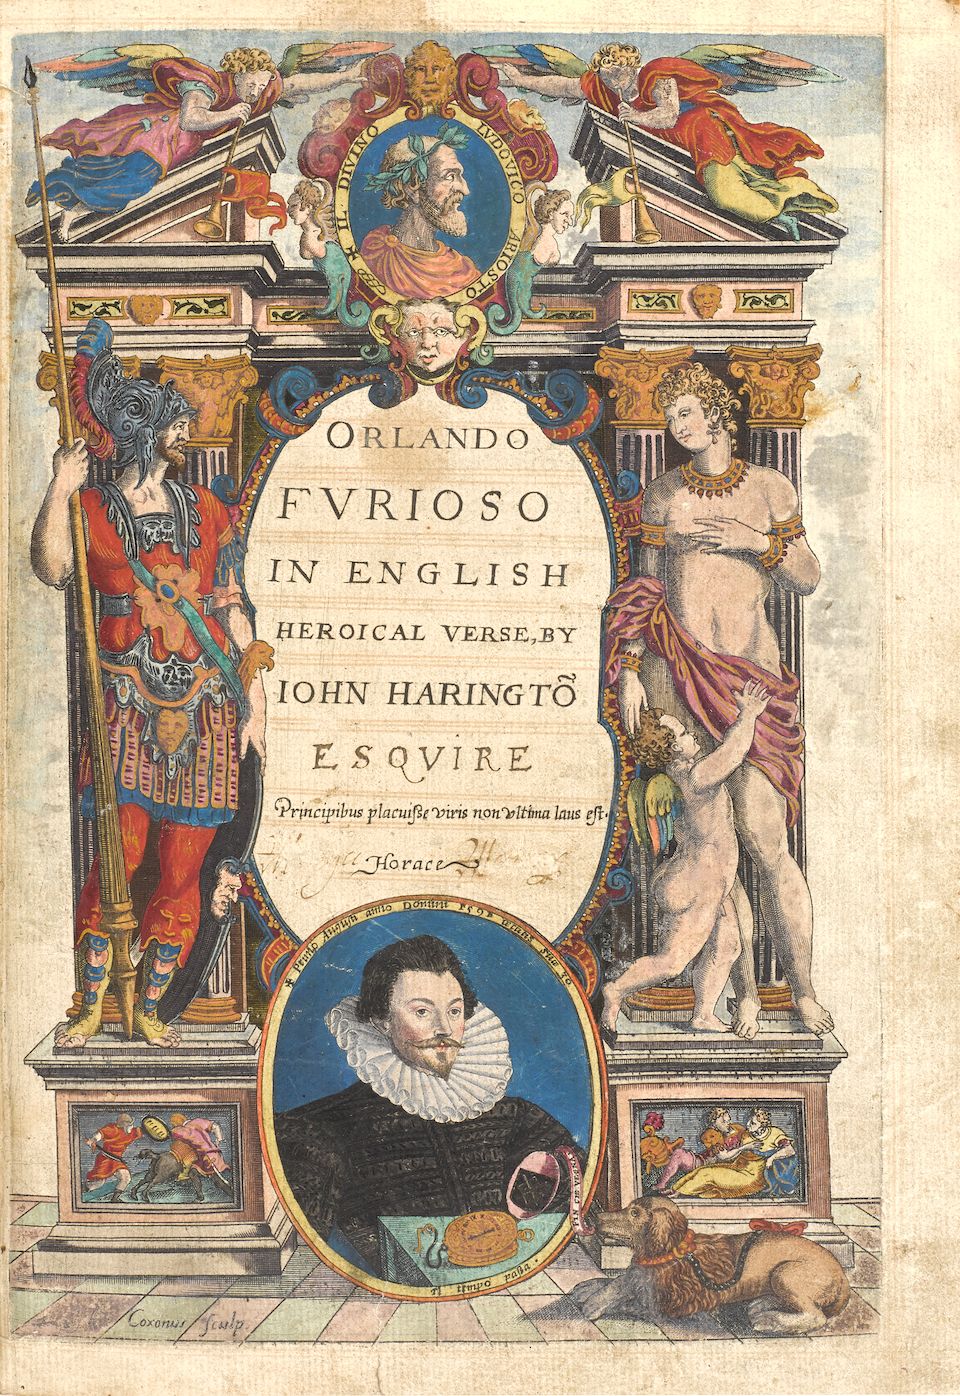 IL DIVINO LVDOVICO ARIOSTO
ORLANDO
FVRIOSO
IN ENGLISH
HEROICAL VERSE, BY
IOHN HARINGTÕ
ESQVIRE
Principibus placuisse viris non vltima laus est.
Horace
Primo Augusti anno Domini 1591 suæ 30
FIN CHE VEGNA
Il tempo passa.
Coxonus Sculp.